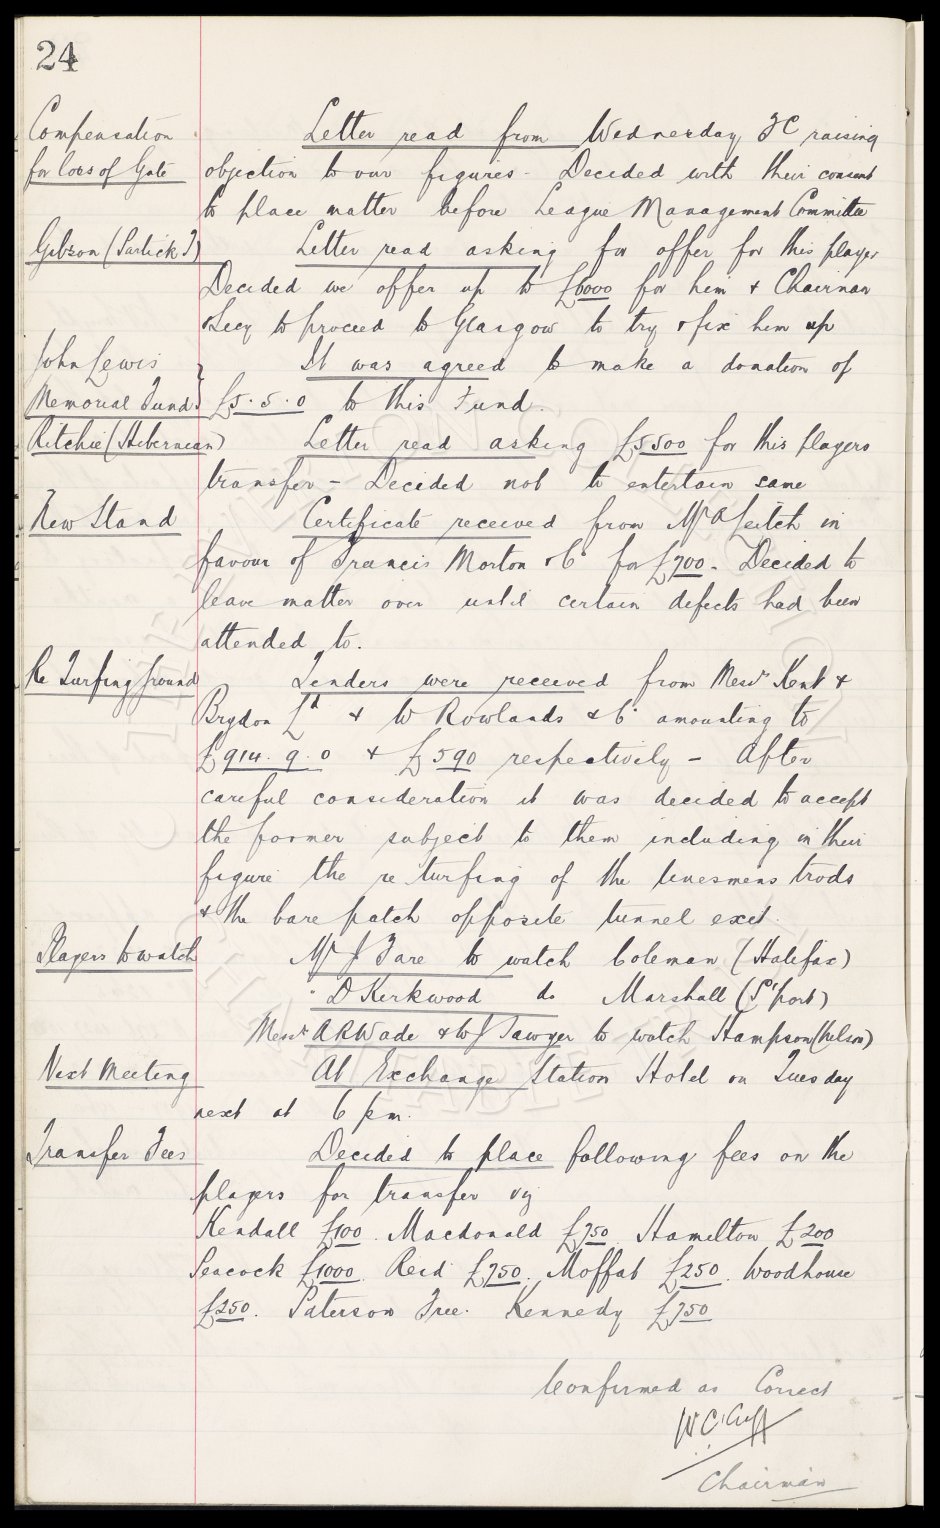 24
Compensation Letter read from Wednesday FC raising
for loss of Gate objection to our figures - Decided with their consent
to place matter before League Management Committee
Gibson (Partick T) Letter read asking for offer for this player
Decided we offer up to £6000 for him & Chairman
& Secy to proceed to Glasgow to try & fix him up
John Lewis It was agreed to make a donation of
Memorial Fund £5.5.0 to this Fund.
Ritchie (Hibernian) Letter read asking £5500 for this players
transfer - Decided not to entertain same
New Stand Certificate received from Mr A Leitch in
favour of Francis Morton & Co for £700 - Decided to
leave matter over until certain defects had been
attended to.
Re Turfing ground Tenders were received from Messrs Kent &
Brydon Ld & W Rowlands & Co amounting to
£914.9.0 & £590 respectively - After
careful consideration it was decided to accept
the former subject to them including in their
figure the re turfing of the linesmens trods
& the bare patch opposite tunnel exit.
Players to watch Mr J Fare to watch Coleman (Halifax)
" D Kirkwood do Marshall (S'port)
Messrs A R Wade & W J Sawyer to watch Hampson (Nelson)
Next Meeting At Exchange Station Hotel on Tuesday
next at 6 pm.
Transfer Fees Decided to place following fees on the
players for transfer viz
Kendall £100. Macdonald £750. Hamilton £200
Peacock £1000. Reid £750. Moffat £250. Woodhouse
£250. Paterson Free. Kennedy £750
Confirmed as Correct
W C Cuff
Chairman